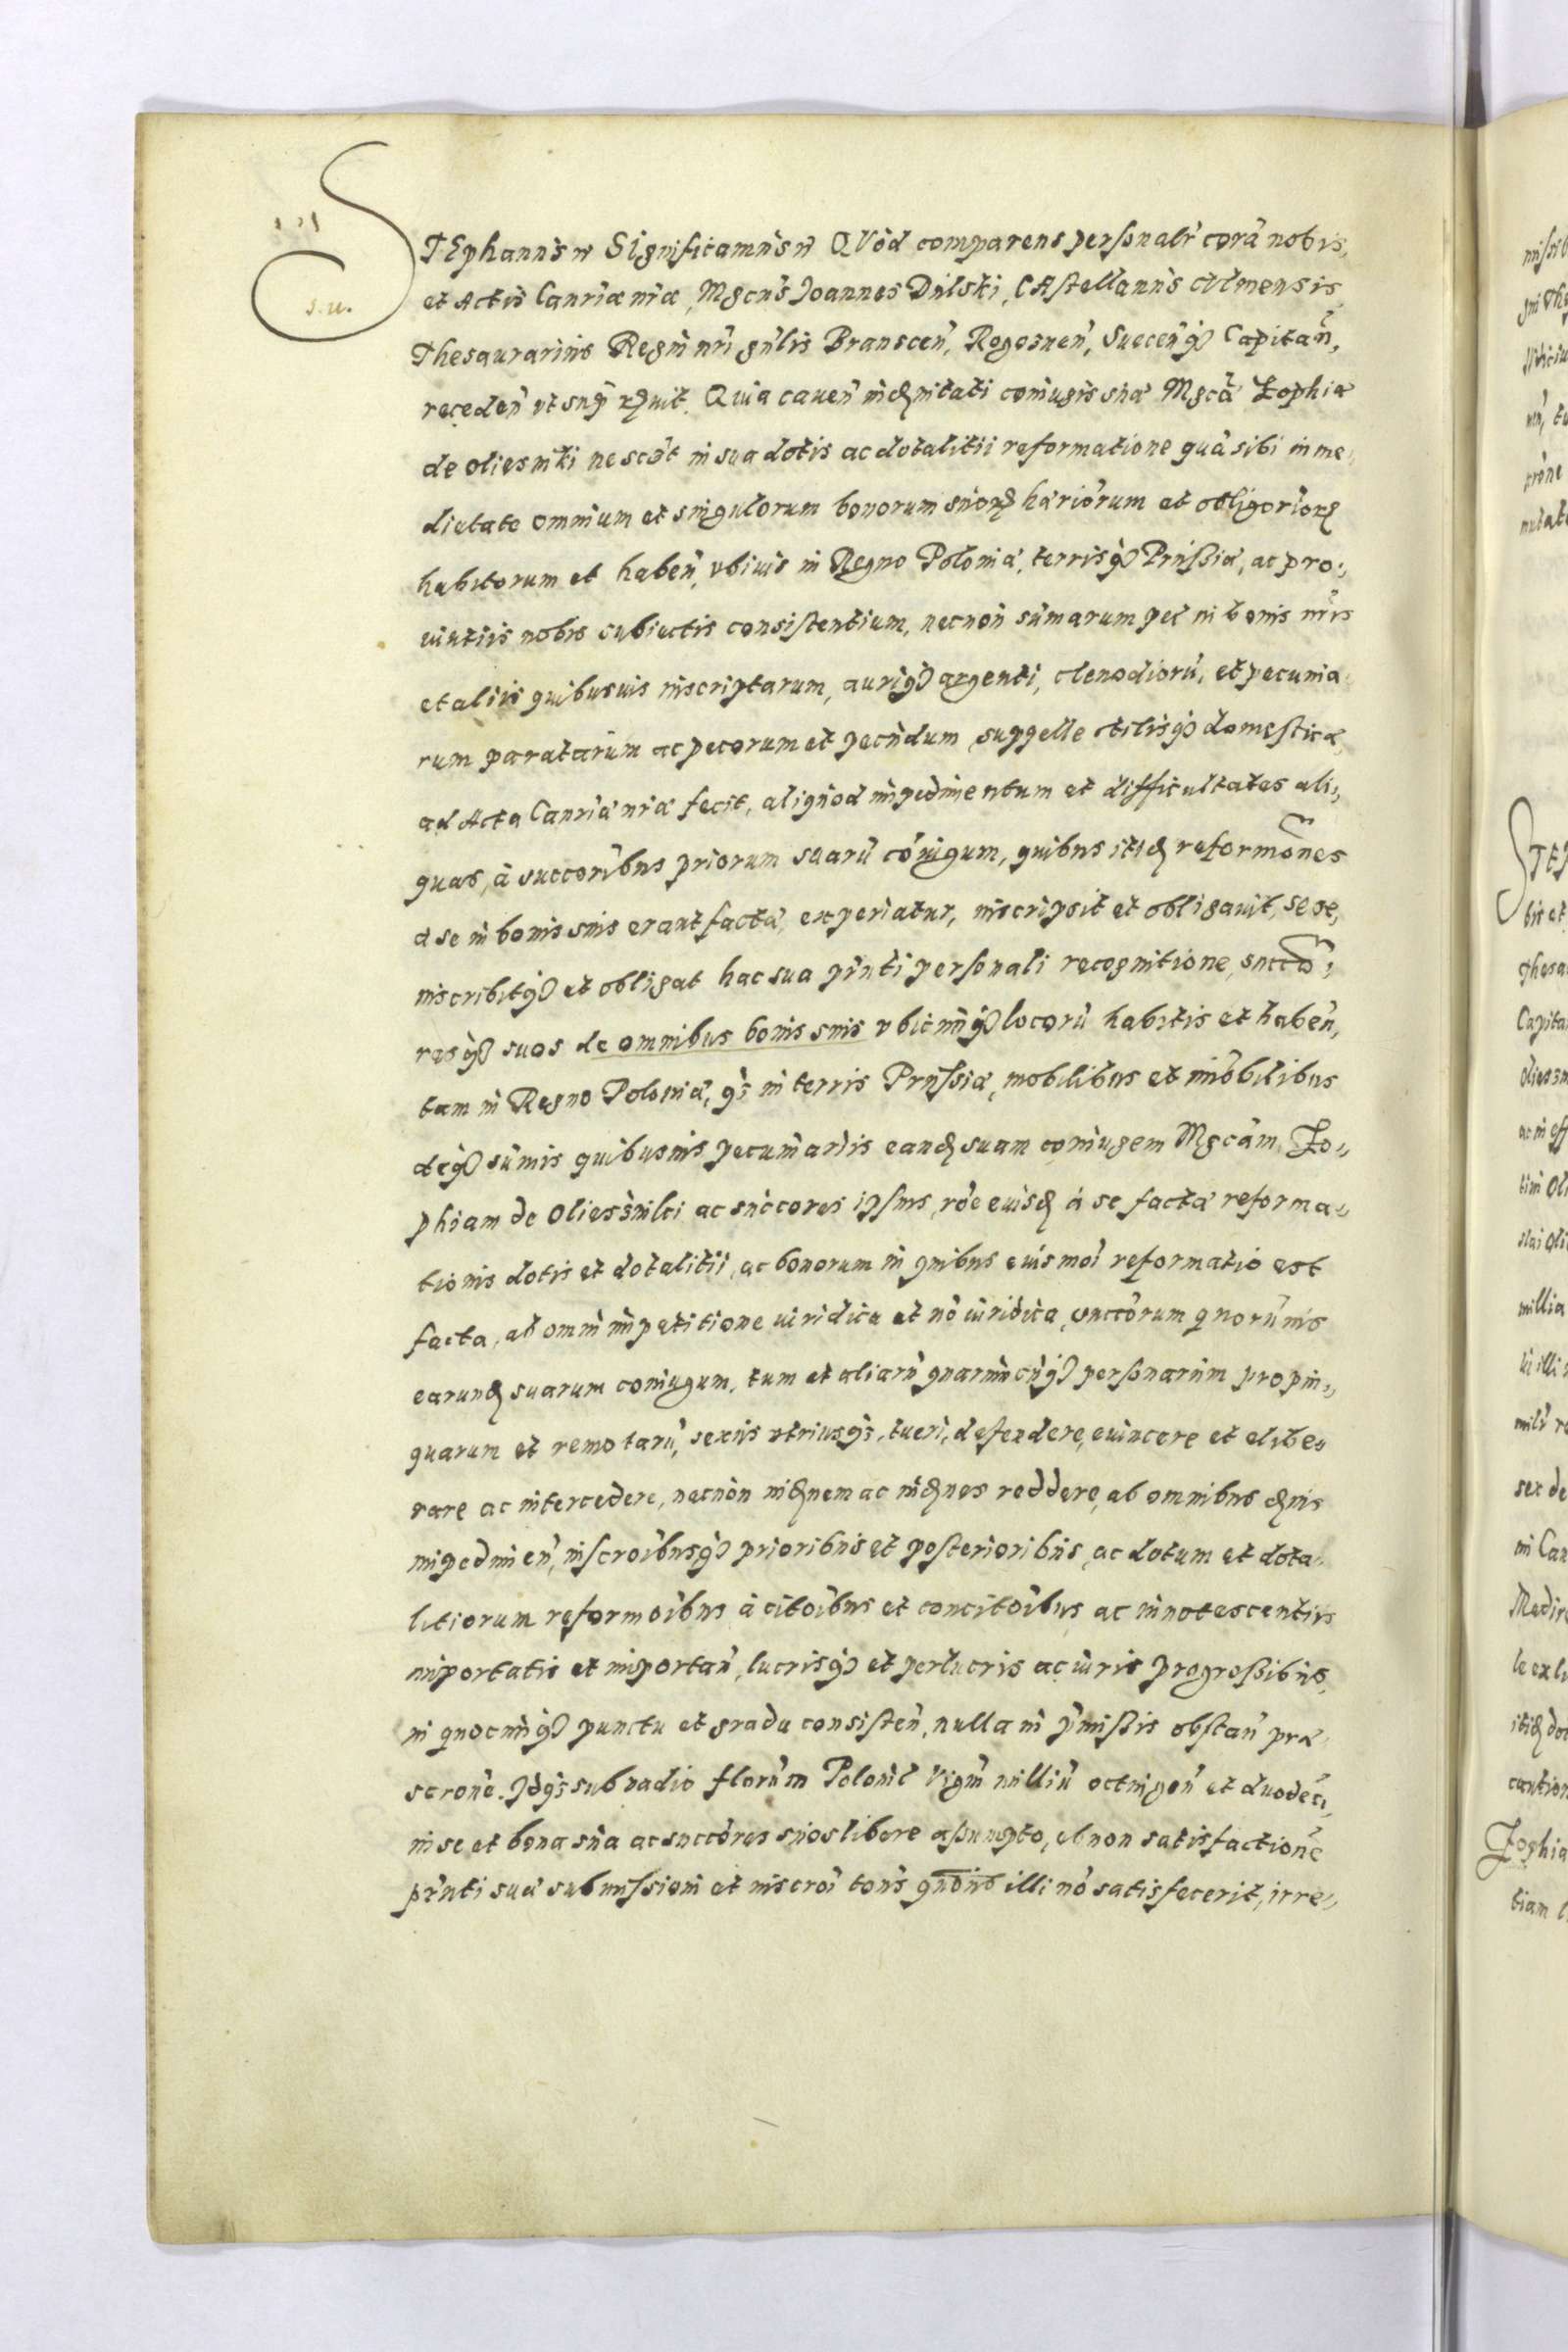 STEphanus etc Significamus etc QVod comparens personalr corã nobis,
et Actis Canriæ nræ, Mgcus Joannes Dulski, CAstellanus culmensis
Thesaurarius Regni nri gnlis Branscen, Rogosnen, Suecenq3 Capitan,
receden vt supr rgnvit. Quia cauen indemnitati coniugis suæ Mgcæ Zophiæ
de Oliesniki ne scdt in sua dotis ac dotalitii reformatione quã sibi in me,
dietate omnium et singulorum bonorum suorum hæriorum et obligoriorum
habitorum et haben, vbiuis in Regno Poloniæ, terrisq3 Prussiæ, ac pro,,
uintiis nobis subiectis consistentium, necnon sũmarum pec in bonis nris
et aliis quibusuis inscriptarum, auriq3 argenti, clenodiorũ, et pecunia
rum paratarum ac pecorum et pecudum suppelle ctilisq3 domesticæ
ad Acta Canriæ nræ fecit, aliquod impedimentum et difficultates ali,,
quas, à succoribus priorum suarũ coniugum, quibus itidem reformones
a se in bonis suis erant factæ, experiatur, inscripsit et obligauit, sese,
inscribitq3 et obligat hac sua prnti personali recognitione succo,
resq3 suos de omnibus bonis suis vbicunq3 locorũ habitis et haben,
tam in Regno Poloniæ, qs in terris Prussiæ, mobilibus et imobilibus
deq3 sũmis quibusuis pecuniariis eandem suam coniugem Mgcam Zo,,
phiam de Oliesniki ac succores ipsius, rõe euisdem à se factæ reforma,,
tionis dotis et dotalitii, ac bonorum in quibus euismoi reformatio est
facta, ab omni impetitione iuridica et nõ iuridica, succorum quorũuis
earundem suarum coniugum, tum et aliarũ quarumcunq3 personarum propin,,
quarum et remotarũ, sexus vtriusqs, tueri, defendere, euincere et elibe,,
rare ac intercedere, necnon indemnem ac indemnes reddere, ab omnibus
impedimen, inscroibusq3 prioribus et posterioribus, ac dotum et dota,,
litiorum reformoibus à citoibus et concitoibus, ac innotescentiis
importatis et importan, lucrisq3 et perlucris ac iuris progressibus,
in quocunq3 punctu et gradu consisten, nulla in pmissis obstan præ
scrone. Jdqs sub vadio florum Polonicl Viginti milliũ octingen et duodeci,
in se et bona sua ac succores suos libere assumpto, ob non satisfactione
prnti suæ submissioni et inscroi tons quõns illi nõ satisfecerit, irre,,
s.u.